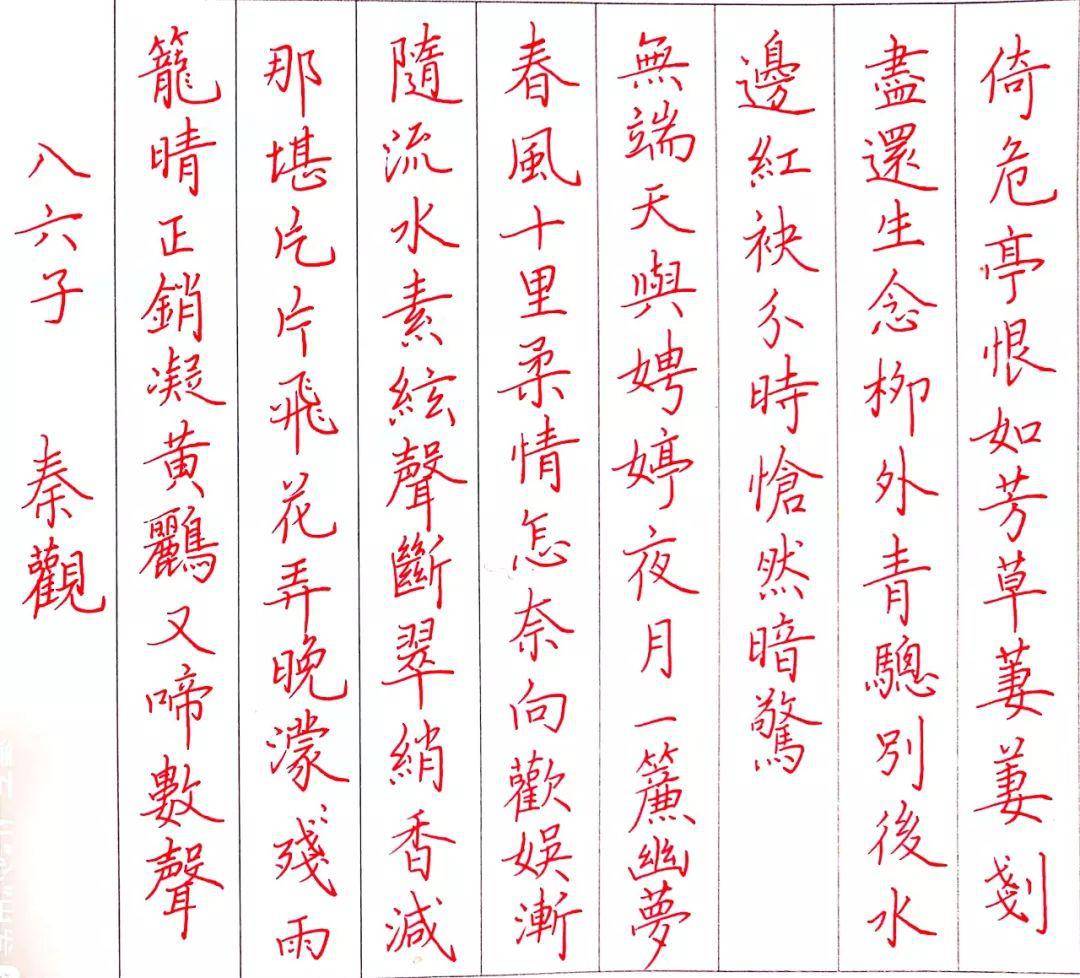 倚危亭恨如芳草萋萋剗
盡還生念柳外青驄別後水
邊紅袂分時愴然暗驚
無端天與娉婷夜月一簾幽夢
春風十里柔情怎奈向歡娛漸
隨流水素絃聲斷翠綃香減
那堪片片飛花弄晚濛濛殘雨
籠晴正銷凝黃鸝又啼數聲
八六子 秦觀